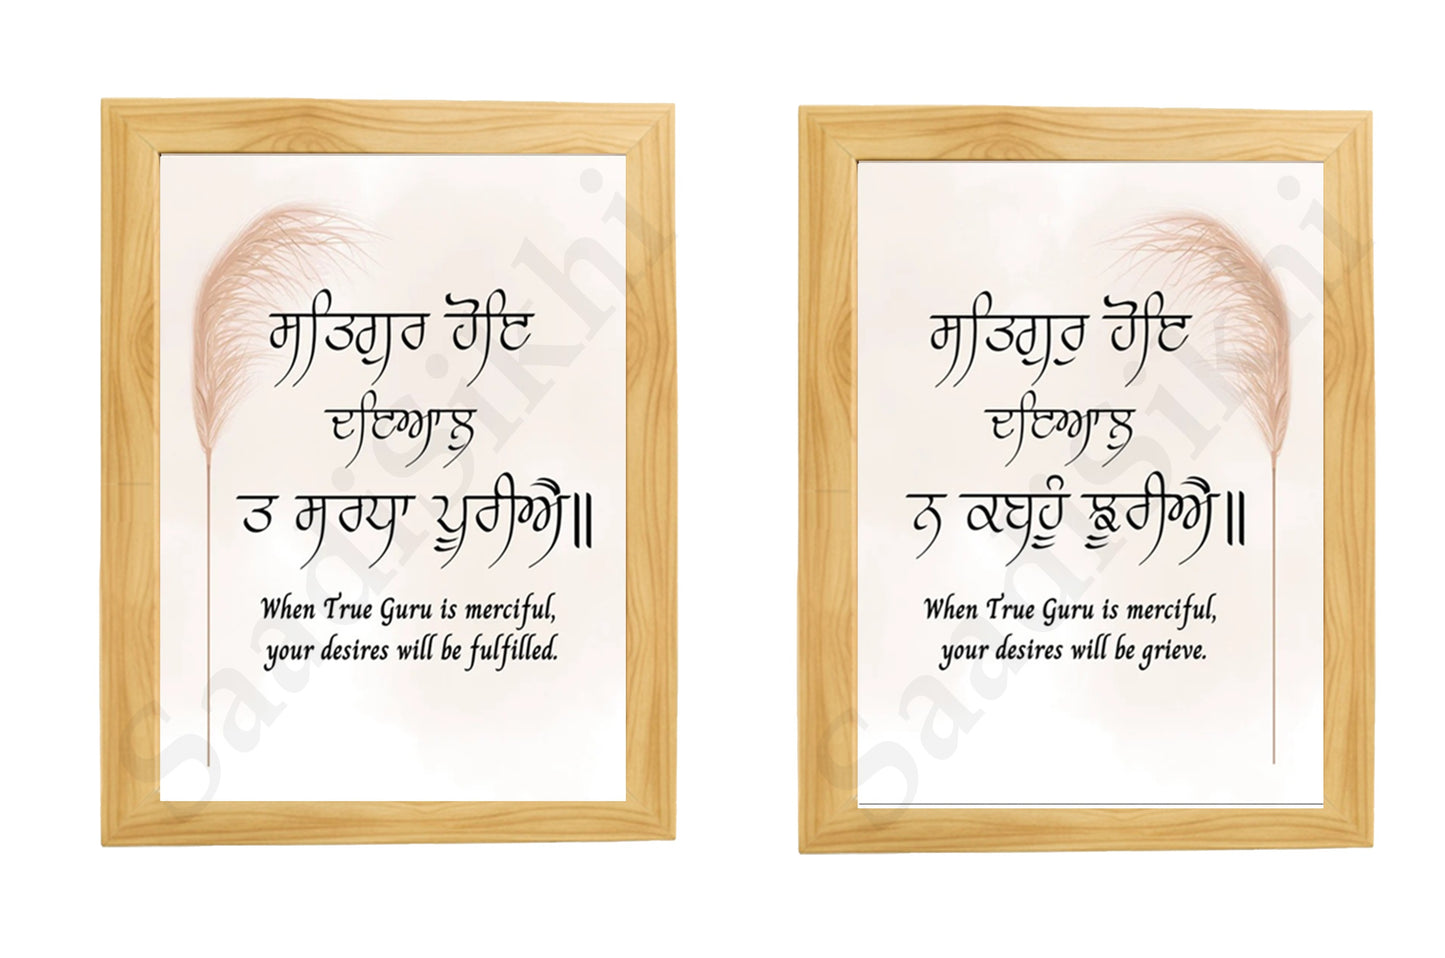 ਸਤਿਗੁਰ ਹੋਇ
ਦਇਆਲੁ
ਤ ਸਰਧਾ ਪੂਰੀਐ॥
When True Guru is merciful,
your desires will be fulfilled.
ਸਤਿਗੁਰੁ ਹੋਇ
ਦਇਆਲੁ
ਨ ਕਬਹੂੰ ਝੂਰੀਐ॥
When True Guru is merciful,
your desires will be grieve.
SaadiSikhi
SaadiSikhi